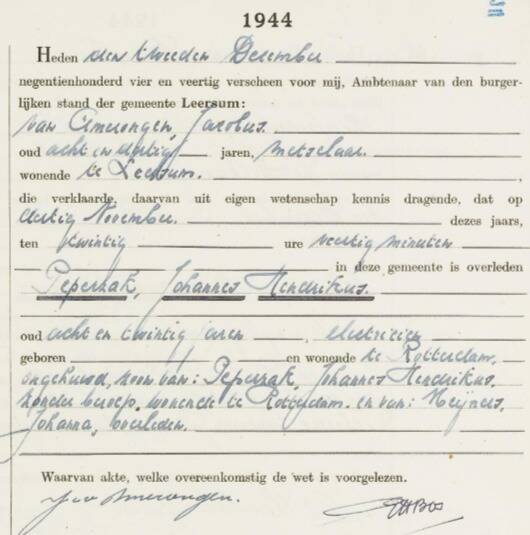 1944
Heden den tweeden December
negentienhonderd vier en veertig verscheen voor mij, Ambtenaar van den burger-
lijken stand der gemeente Leersum:
van Amerongen, Jacobus.
oud acht en dertig jaren, metselaar
wonende te Leersum.
die verklaarde, daarvan uit eigen wetenschap kennis dragende, dat op
dertig November dezes jaars,
ten twintig ure veertig minuten
in deze gemeente is overleden
Peperzak, Johannes Hendrikus.
oud acht en twintig jaren, electricien
geboren en wonende te Rotterdam,
ongehuwd, zoon van: Peperzak, Johannes Hendrikus,
zonder beroep, wonende te Rotterdam. en van: Meijnes,
Johanna, overleden.
Waarvan akte, welke overeenkomstig de wet is voorgelezen.
J van Amerongen.